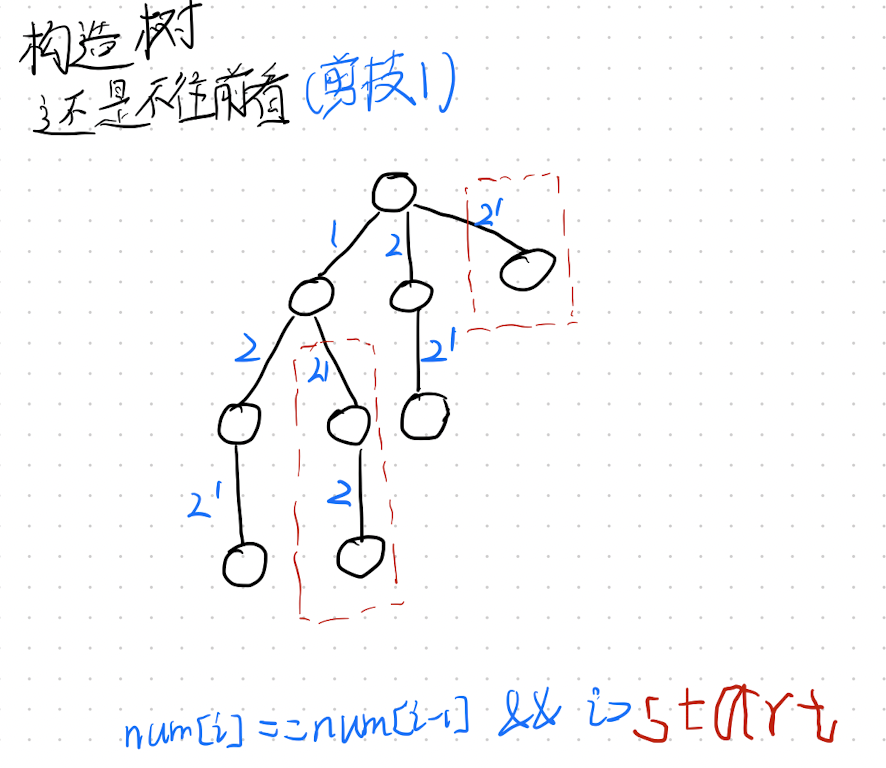 构造树
还是不往前看(剪技1)
1
2
2'
2
2'
2'
2'
2
num[i]==num[i-1] && i>start